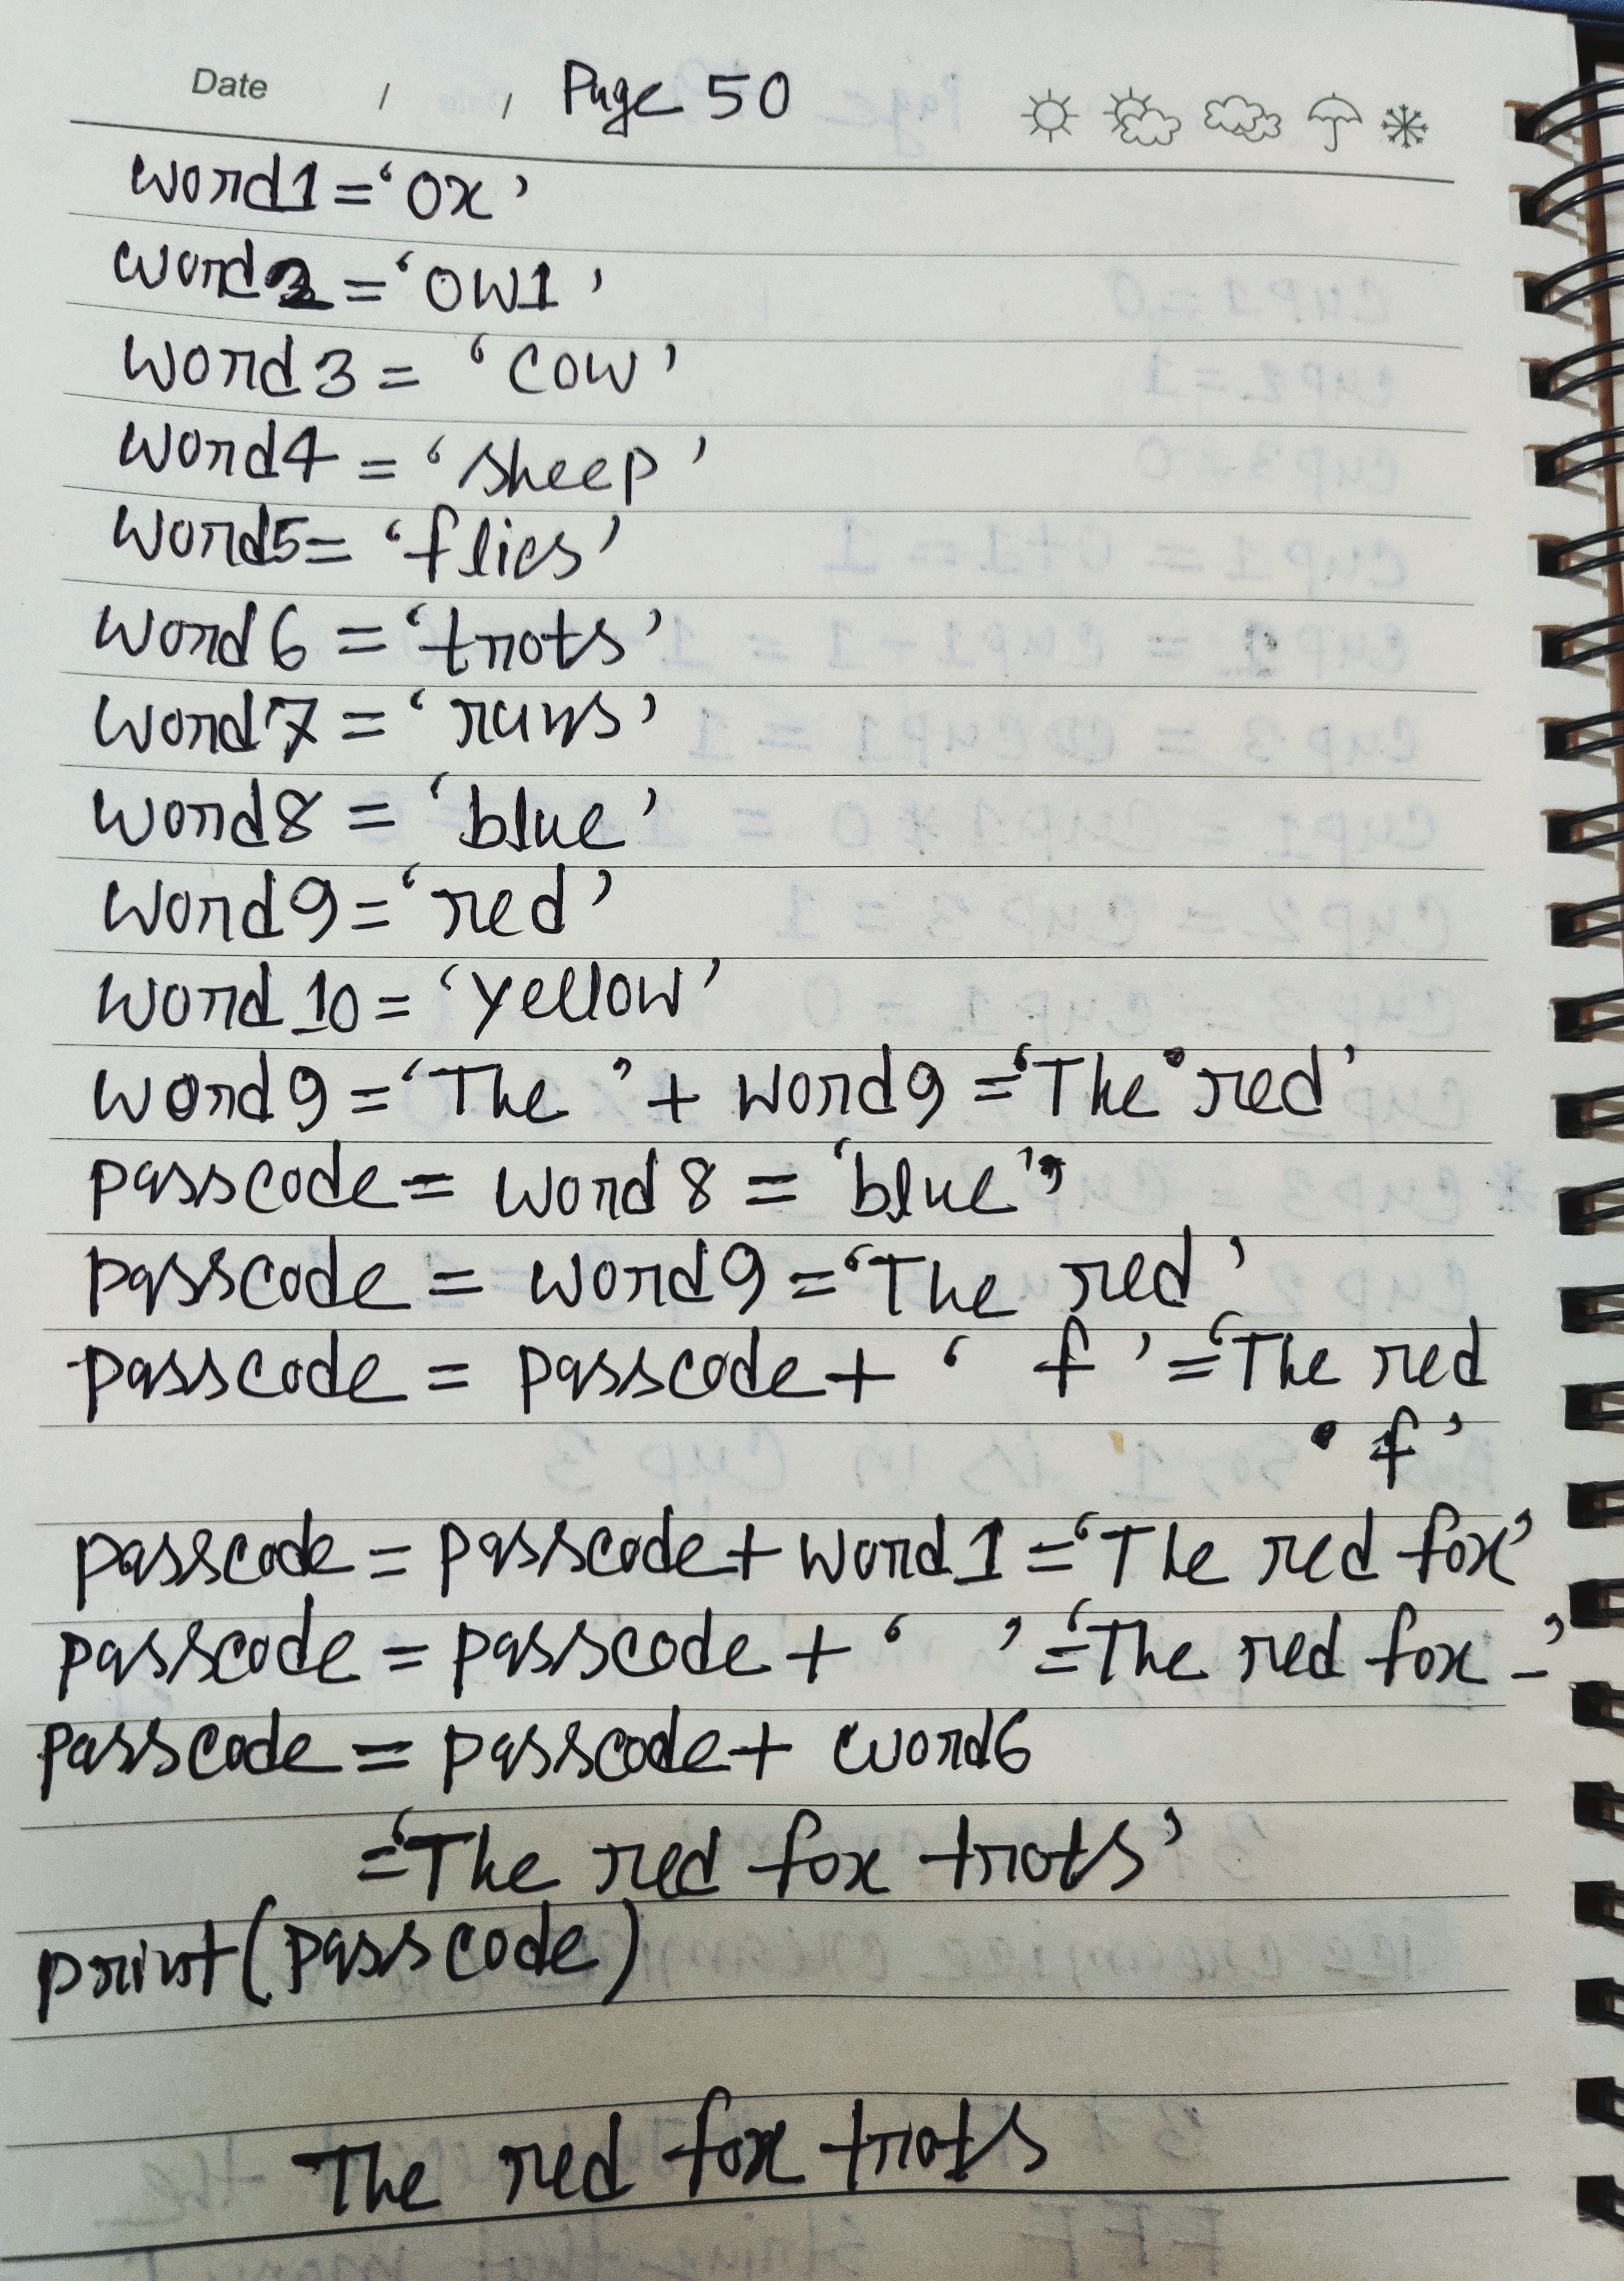 Date / / Page 50
word1 = 'ox'
word2 = 'ow1'
word3 = 'cow'
word4 = 'sheep'
word5 = 'flies'
word6 = 'trots'
word7 = 'runs'
word8 = 'blue'
word9 = 'red'
word10 = 'yellow'
word9 = 'The ' + word9 = 'The red'
passcode = word8 = 'blue'
passcode = word9 = 'The red'
passcode = passcode + ' f' = 'The red
f'
passcode = passcode + word1 = 'The red fox'
passcode = passcode + ' ' = 'The red fox _'
passcode = passcode + word6
= 'The red fox trots'
print(passcode)
The red fox trots